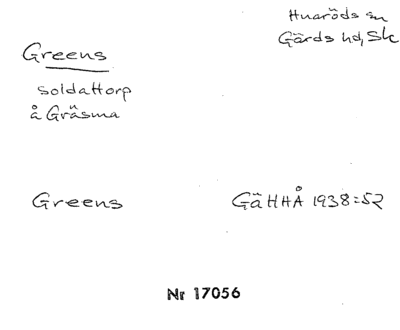 Huaröds sn
Gärds hd, Sk
Greens
soldattorp
å Gräsma
Greens
GäHHÅ 1938:52
Nr 17056